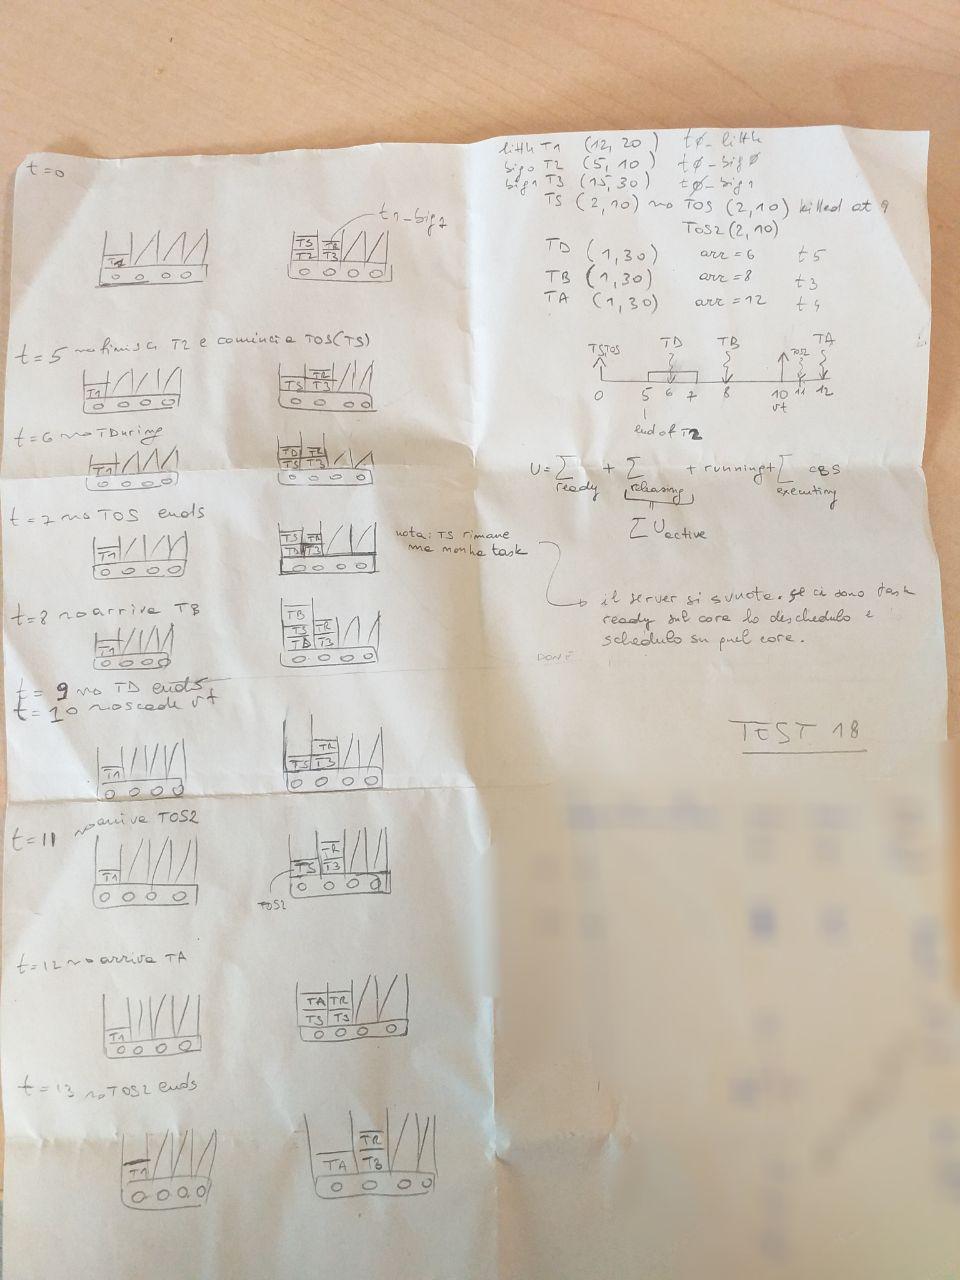 t=0
T1
TS
T2
TR
T3
t1_big1
t=5 → finisce T2 e comincia TOS(TS)
T1
TS
TR
T3
t=6 → TDuring
T1
TD
TS
TR
T3
t=7 → TOS ends
T1
TS
TD
TR
T3
nota: TS rimane
ma monha task
t=8 → arriva TB
T1
TB
TS
TD
TR
T3
t=9 → TD ends
t=10 → scade vt
T1
TS
TR
T3
t=11 → arriva TOS2
T1
TS
TR
T3
TOS2
t=12 → arriva TA
T1
TA TR
TS T3
t=13 → TOS2 ends
T1
TA
TR
T3
little T1 (12, 20) t0_little
big0 T2 (5, 10) t0_big0
big1 T3 (15, 30) t0_big1
TS (2,10) → TOS (2,10) killed at 9
TOS2 (2,10)
TD (1,30) arr=6 t5
TB (1,30) arr=8 t3
TA (1,30) arr=12 t4
TS,TOS TD TB TOS2 TA
0 5 6 7 8 10 11 12
vt
end of T2
U= Σ + Σ + running + Σ CBS
ready releasing executing
=
Σ Uactive
il server si svuota. se ci sono task
ready sul core lo deschedulo e
schedulo su quel core.
DONE
TEST 18